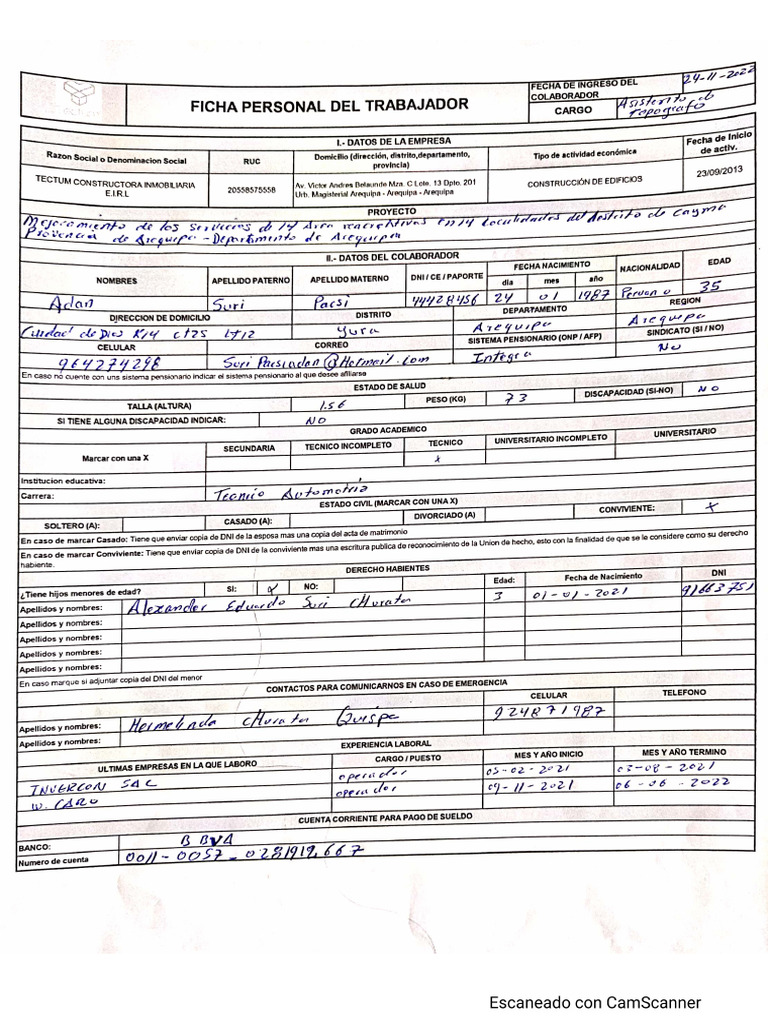 FICHA PERSONAL DEL TRABAJADOR
FECHA DE INGRESO DEL COLABORADOR 24-11-2022
CARGO Asistente de Topografo
I.- DATOS DE LA EMPRESA
Razon Social o Denominacion Social RUC Domicilio (dirección, distrito,departamento, provincia) Tipo de actividad económica Fecha de Inicio de activ.
TECTUM CONSTRUCTORA INMOBILIARIA E.I.R.L 20558575558 Av. Victor Andres Belaunde Mza. C Lote. 13 Dpto. 201 Urb. Magisterial Arequipa - Arequipa - Arequipa CONSTRUCCIÓN DE EDIFICIOS 23/09/2013
PROYECTO
Mejoramiento de los Servicios de 14 Area recreativas En 14 Localidades del distrito de Cayma
Provincia de Arequipa - Departamento de Arequipa
II.- DATOS DEL COLABORADOR
NOMBRES APELLIDO PATERNO APELLIDO MATERNO DNI / CE / PAPORTE FECHA NACIMIENTO NACIONALIDAD EDAD
dia mes año
Adan Suri Pacsi 44428456 24 01 1987 Peruano 35
DIRECCION DE DOMICILIO DISTRITO DEPARTAMENTO REGION
Ciudad de Dios K14 Lt12 Yura Arequipa Arequipa
CELULAR CORREO SISTEMA PENSIONARIO (ONP / AFP) SINDICATO (SI / NO)
964274298 Suri Pacsiadan@Hotmeil.com Integra No
En caso no cuente con uns sistema pensionario indicar el sistema pensionario al que desee afliarse
ESTADO DE SALUD
TALLA (ALTURA) 1.56 PESO (KG) 73 DISCAPACIDAD (SI-NO) NO
SI TIENE ALGUNA DISCAPACIDAD INDICAR: NO
GRADO ACADEMICO
Marcar con una X SECUNDARIA TECNICO INCOMPLETO TECNICO UNIVERSITARIO INCOMPLETO UNIVERSITARIO
x
Institucion educativa:
Carrera: Tecnico Automotris
ESTADO CIVIL (MARCAR CON UNA X)
SOLTERO (A): CASADO (A): DIVORCIADO (A) CONVIVIENTE: x
En caso de marcar Casado: Tiene que enviar copia de DNI de la esposa mas una copia del acta de matrimonio
En caso de marcar Conviviente: Tiene que enviar copia de DNI de la conviviente mas una escritura publica de reconocimiento de la Union de hecho, esto con la finalidad de que se le considere como su derecho
habiente.
DERECHO HABIENTES
¿Tiene hijos menores de edad? SI: x NO: Edad: Fecha de Nacimiento DNI
Apellidos y nombres: Alexander Eduardo Suri CHurata 3 01-01-2021 91663751
Apellidos y nombres:
Apellidos y nombres:
Apellidos y nombres:
Apellidos y nombres:
En caso marque si adjuntar copia del DNI del menor
CONTACTOS PARA COMUNICARNOS EN CASO DE EMERGENCIA
CELULAR TELEFONO
Apellidos y nombres: Hermelinda CHurata Quispe 924871987
Apellidos y nombres:
EXPERIENCIA LABORAL
ULTIMAS EMPRESAS EN LA QUE LABORO CARGO / PUESTO MES Y AÑO INICIO MES Y AÑO TERMINO
INVERCON SAC operador 05-02-2021 03-08-2021
W. CARO operador 09-11-2021 06-06-2022
CUENTA CORRIENTE PARA PAGO DE SUELDO
BANCO: BBVA
Numero de cuenta 0011-0057-0281919667
Escaneado con CamScanner